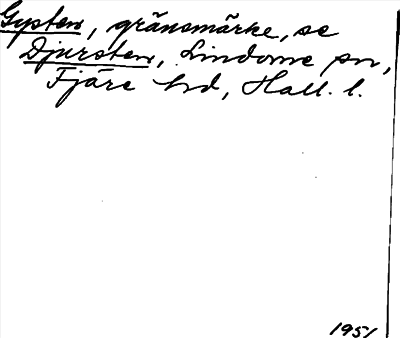 Gypsten, gränsmärke, se
Djursten, Lindome sn,
Fjäre hd, Hall. l.
1951